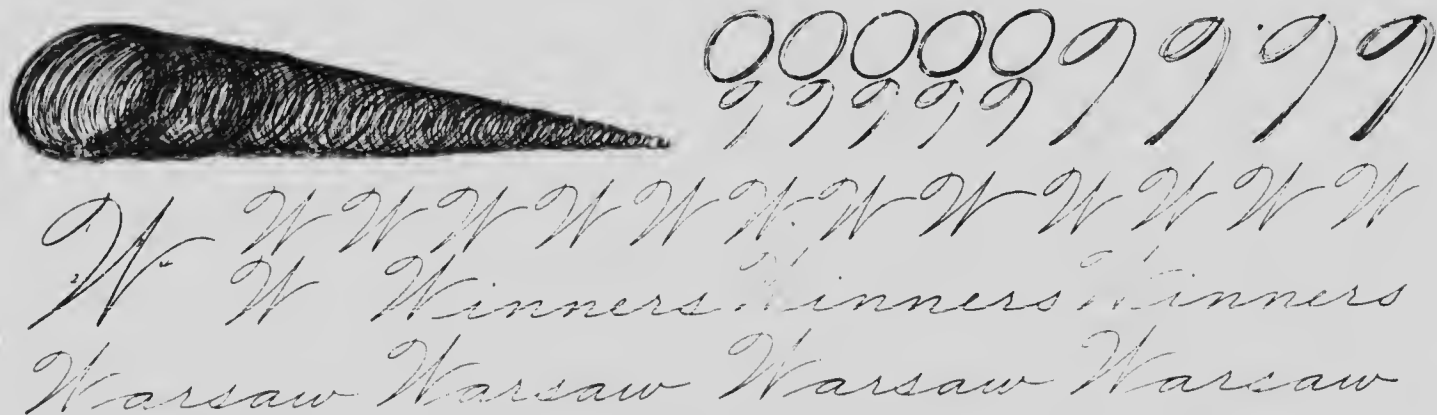 O O O O O 9 9 9 9
9 9 9 9 9
W W W W W W W W W W W W W
W Winners Winners Winners
Warsaw Warsaw Warsaw Warsaw